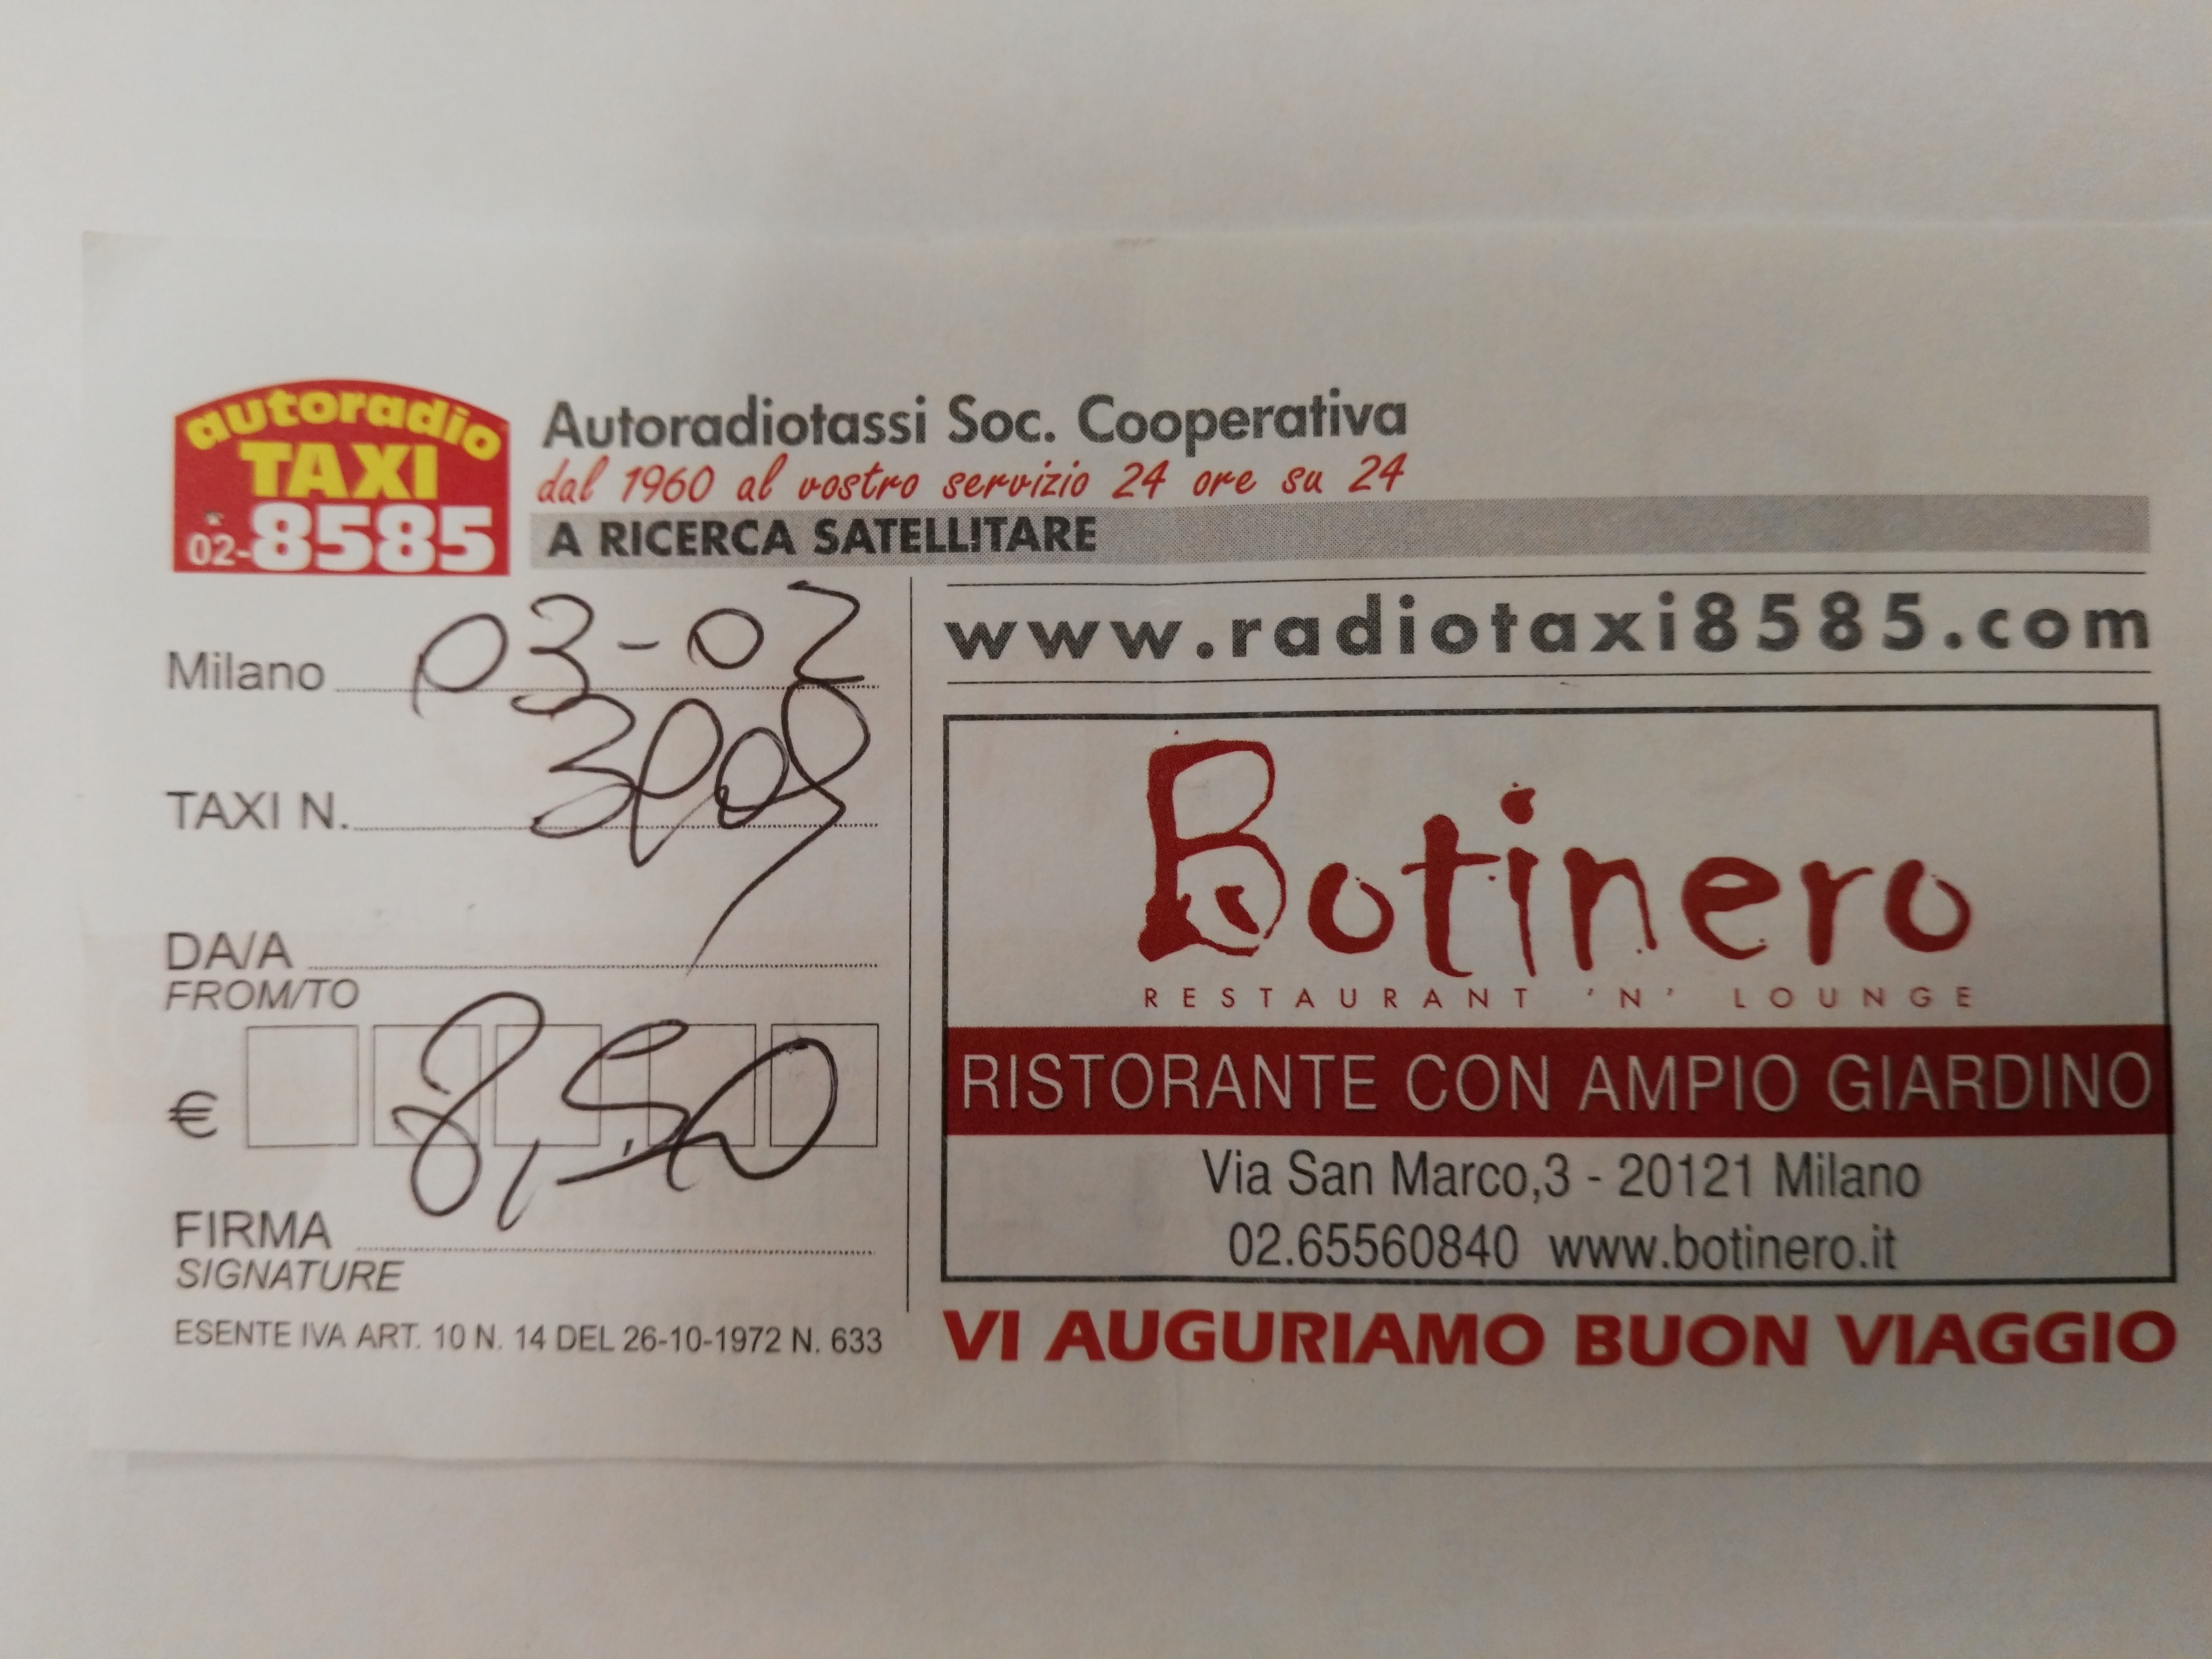 autoradio
TAXI
02-8585
Autoradiotassi Soc. Cooperativa
dal 1960 al vostro servizio 24 ore su 24
A RICERCA SATELLITARE
Milano 03-02
TAXI N.
DA/A
FROM/TO
€ 8,50
FIRMA
SIGNATURE
ESENTE IVA ART. 10 N. 14 DEL 26-10-1972 N. 633
www.radiotaxi8585.com
Botinero
RESTAURANT 'N' LOUNGE
RISTORANTE CON AMPIO GIARDINO
Via San Marco,3 - 20121 Milano
02.65560840 www.botinero.it
VI AUGURIAMO BUON VIAGGIO